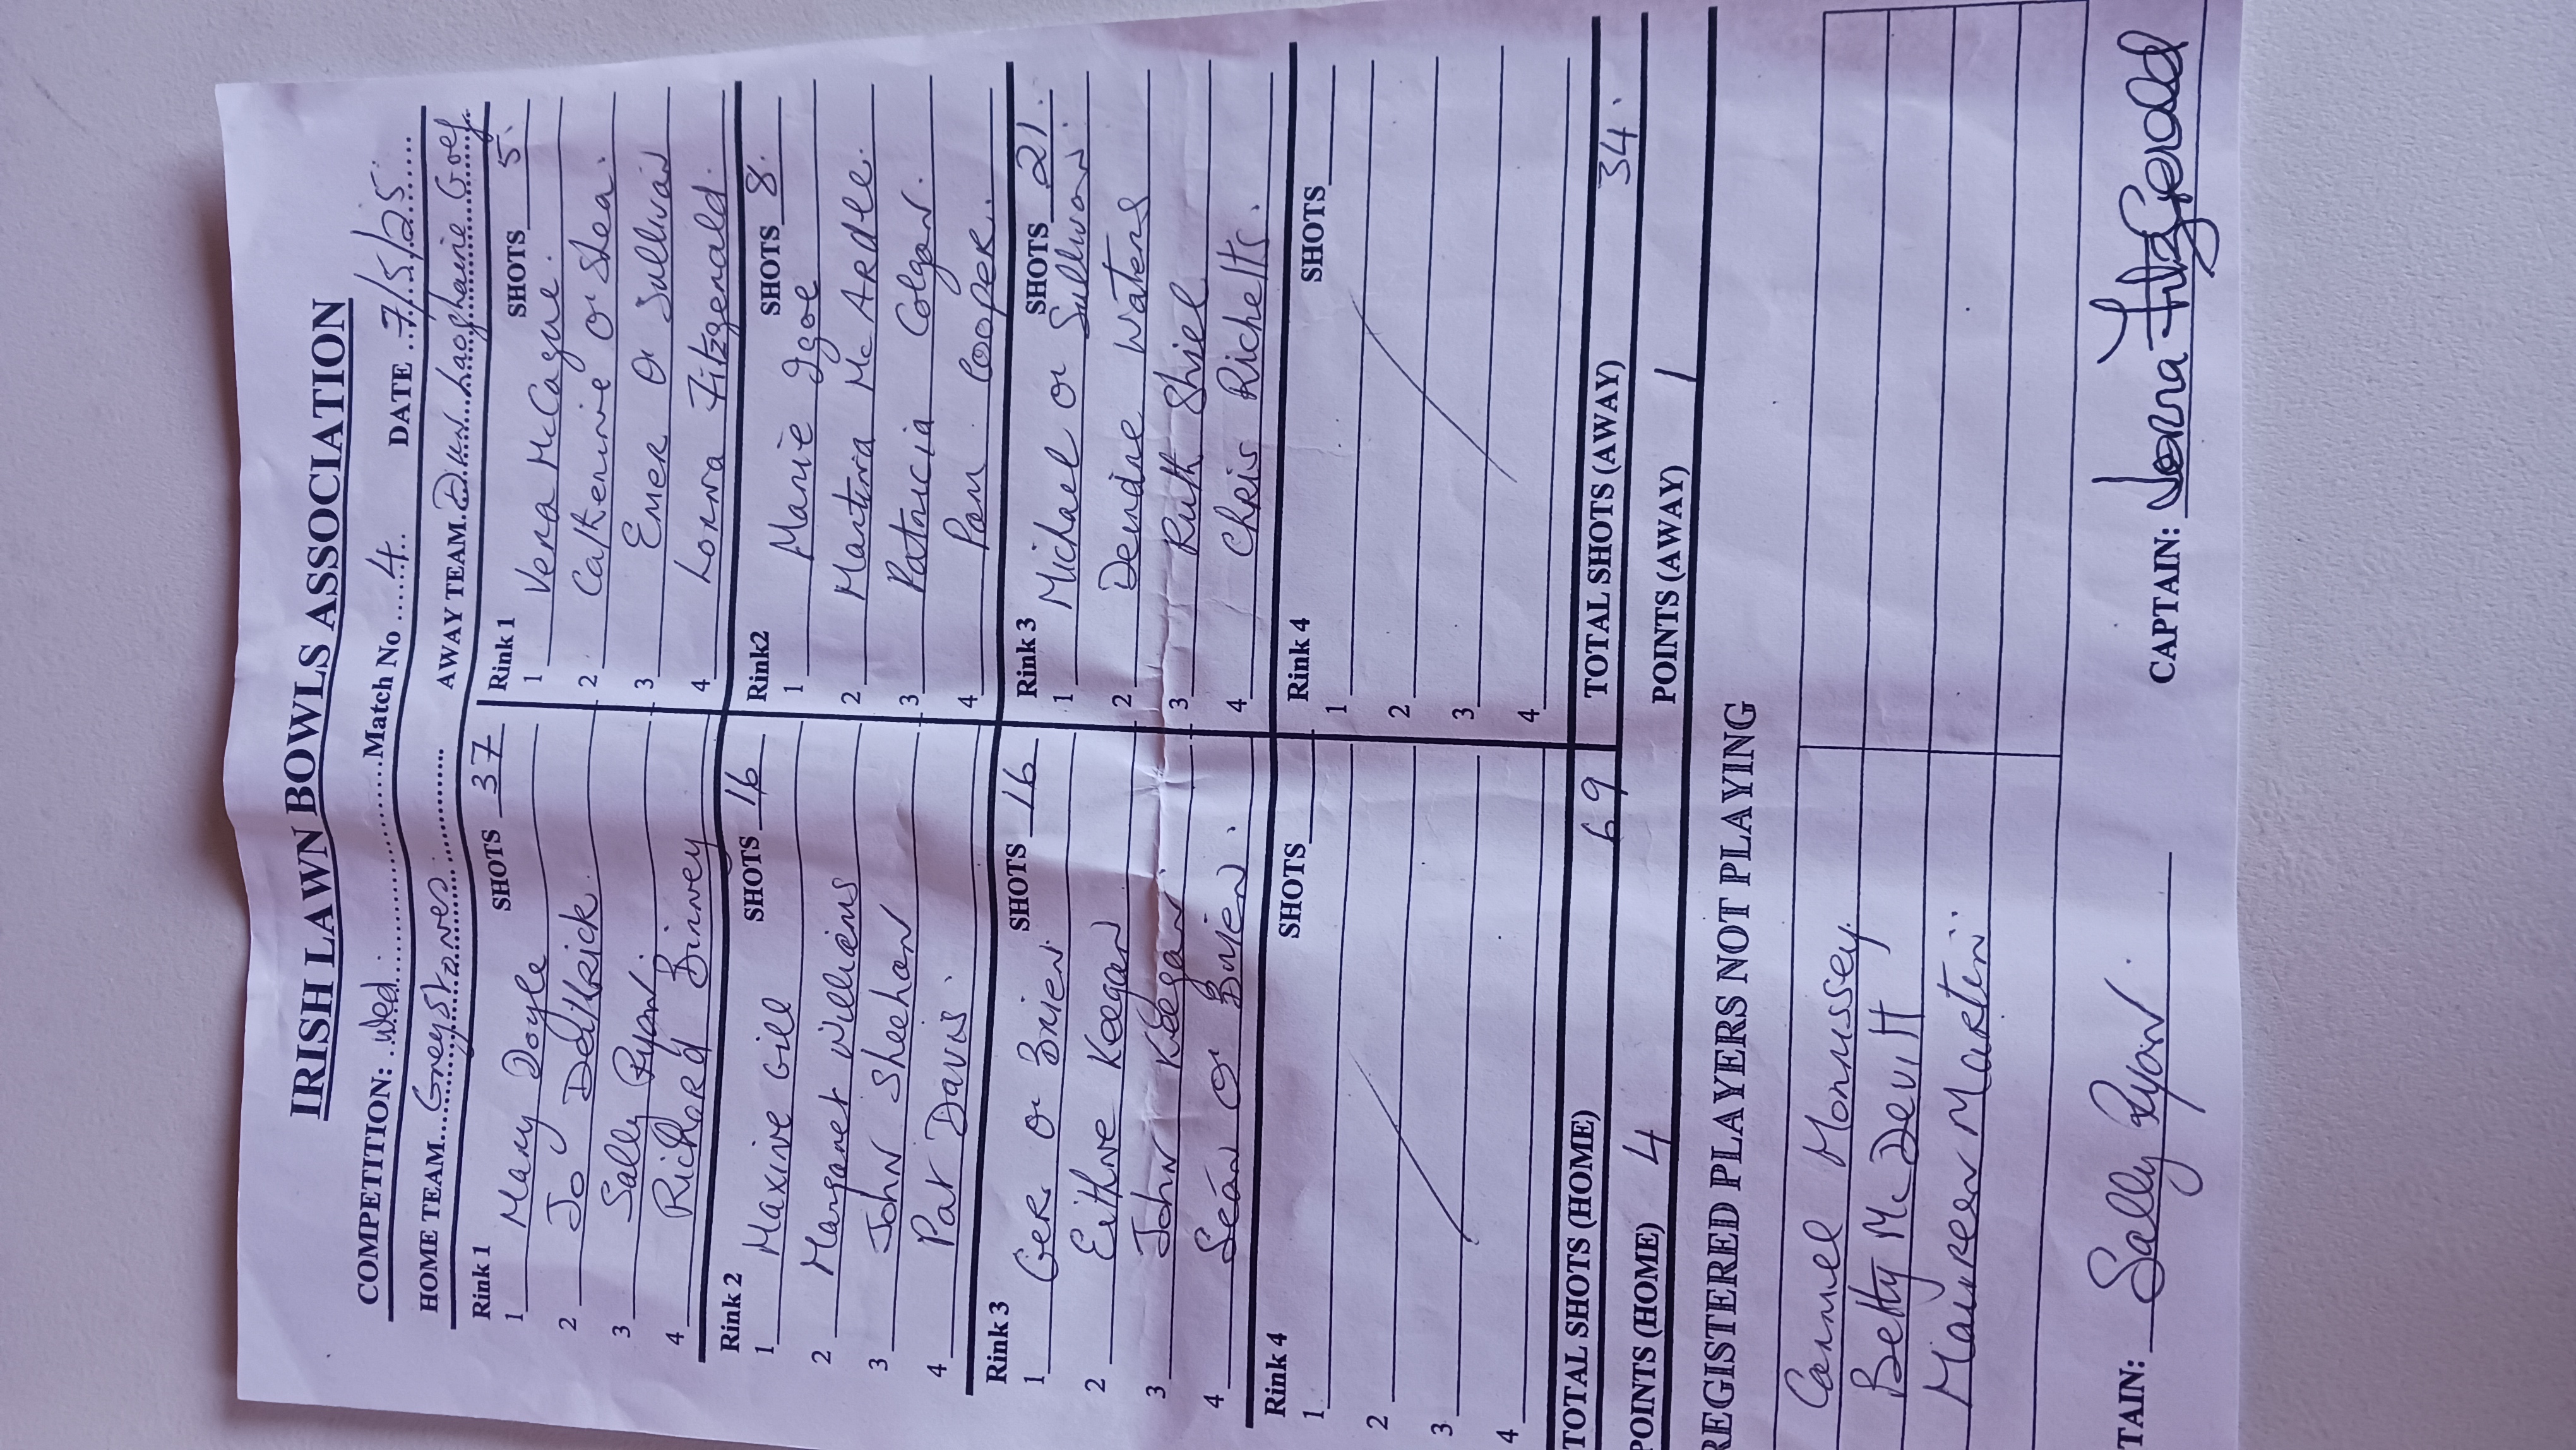 IRISH LAWN BOWLS ASSOCIATION
COMPETITION: Wed Match No 4 DATE 7/5/25
HOME TEAM Greystones AWAY TEAM Dun Laoghaire Golf
Rink 1 SHOTS 37 Rink 1 SHOTS 5
1 Mary Doyle 1 Vera McCague
2 Jo Deitkrick 2 Catherine O' Shea
3 Sally Ryan 3 Emer O' Sullivan
4 Richard Binney 4 Lorna Fitzgerald
Rink 2 SHOTS 16 Rink2 SHOTS 8
1 Maxine Gill 1 Marie Igoe
2 Margaret Williams 2 Martina Mc Ardle
3 John Sheehan 3 Patricia Colgan
4 Pat Davis 4 Pam Cooper
Rink 3 SHOTS 16 Rink 3 SHOTS 21
1 Ger O' Brien 1 Michael O' Sullivan
2 Eithne Keegan 2 Deirdre Waters
3 John Keegan 3 Ruth Shiel
4 Seán O' Brien 4 Chris Richelts
Rink 4 SHOTS Rink 4 SHOTS
1 1
2 2
3 3
4 4
TOTAL SHOTS (HOME) 69 TOTAL SHOTS (AWAY) 34
POINTS (HOME) 4 POINTS (AWAY) 1
REGISTERED PLAYERS NOT PLAYING
Carmel Morrissey
Betty Mc Devitt
Maureen Martin
TAIN: Sally Ryan CAPTAIN: Lorna Fitzgerald